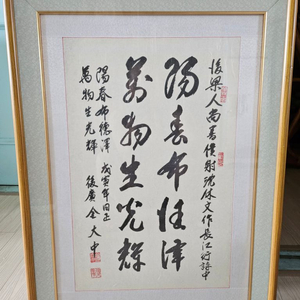 後梁人尚書僕射沈休文作長江行詩中
陽春布德澤
萬物生光輝
陽春布德澤
萬物生光輝
戊寅年日正
後廣金大中